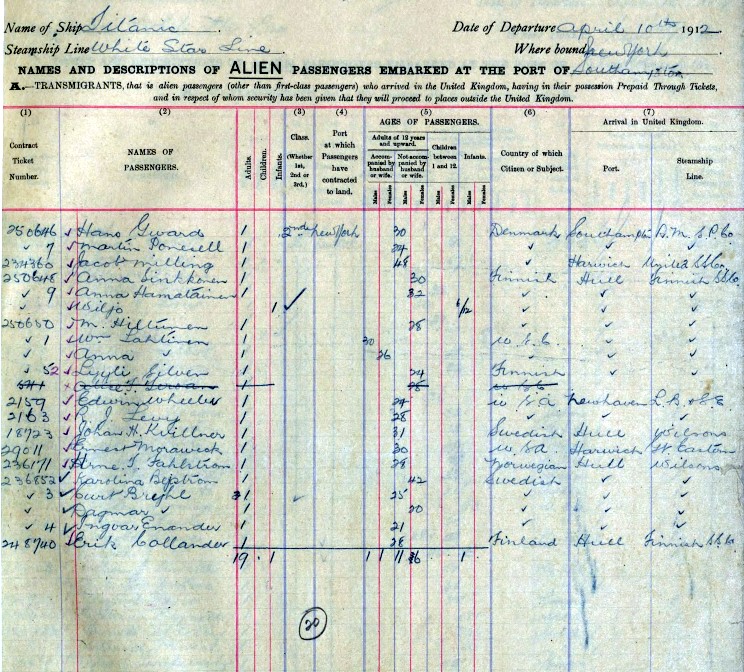 Name of Ship Titanic Date of Departure April 10th 1912
Steamship Line White Star Line Where bound New York
NAMES AND DESCRIPTIONS OF ALIEN PASSENGERS EMBARKED AT THE PORT OF Southampton
A.—TRANSMIGRANTS, that is alien passengers (other than first-class passengers) who arrived in the United Kingdom, having in their possession Prepaid Through Tickets,
and in respect of whom security has been given that they will proceed to places outside the United Kingdom.
(1) (2) (3) (4) (5) (6) (7)
Contract Ticket Number.
NAMES OF PASSENGERS.
Adults. Children. Infants.
Class. (Whether 1st, 2nd or 3rd.)
Port at which Passengers have contracted to land.
AGES OF PASSENGERS.
Adults of 12 years and upward.
Accompanied by husband or wife. Not accompanied by husband or wife.
Children between 1 and 12. Infants.
Males Females Males Females Males Females Males Females
Country of which Citizen or Subject.
Arrival in United Kingdom.
Port. Steamship Line.
250646 ✓ Hans Givard 1 2nd New York 30 Denmark Southampton R.M.S.P.Co
✓ 7 ✓ Martin Ponesell 1 24 ✓ ✓ ✓
234360 ✓ Jacob Milling 1 48 ✓ Harwich United SS Co
250648 ✓ Anna Sinkkonen 1 30 Finnish Hull Finnish SS Co
✓ 9 ✓ Anna Hamatainen 1 ✓ 32 ✓ ✓ ✓
✓ ✓ Wiljo 1 6/12 ✓ ✓ ✓
250650 ✓ M. Hiltunen 1 28 ✓ ✓ ✓
✓ 1 ✓ Wm Lahtinen 1 30 ✓ ✓
✓ ✓ Anna " 1 26 ✓ ✓ ✓
✓ 52 ✓ Lyyli Silven 1 24 Finnish ✓ ✓
1
2159 ✓ Edwin Wheeler 1 24 U.S.A. Newhaven
2163 ✓ R. J. Levy 1 28 ✓ ✓ ✓
18723 ✓ Johan H. Kvillner 1 31 Swedish Hull Wilsons
29011 ✓ Ernest Moraweck 1 30 U.S.A. Harwich Gt Eastern
236171 ✓ Arne J. Fahlstrom 1 28 Norwegian Hull Wilsons
236852 ✓ Karolina Bystrom 1 42 Swedish ✓ ✓
✓ 3 ✓ Curt 1 ✓ 25 ✓ ✓ ✓
✓ ✓ Dagmar ✓ 1 20 ✓ ✓ ✓
✓ 4 ✓ Ingvar Enander 1 21 ✓ ✓ ✓
248740 ✓ Erik Collander 1 28 Finland Hull Finnish SS Co
19 . 1 1 1 11 6 1
20